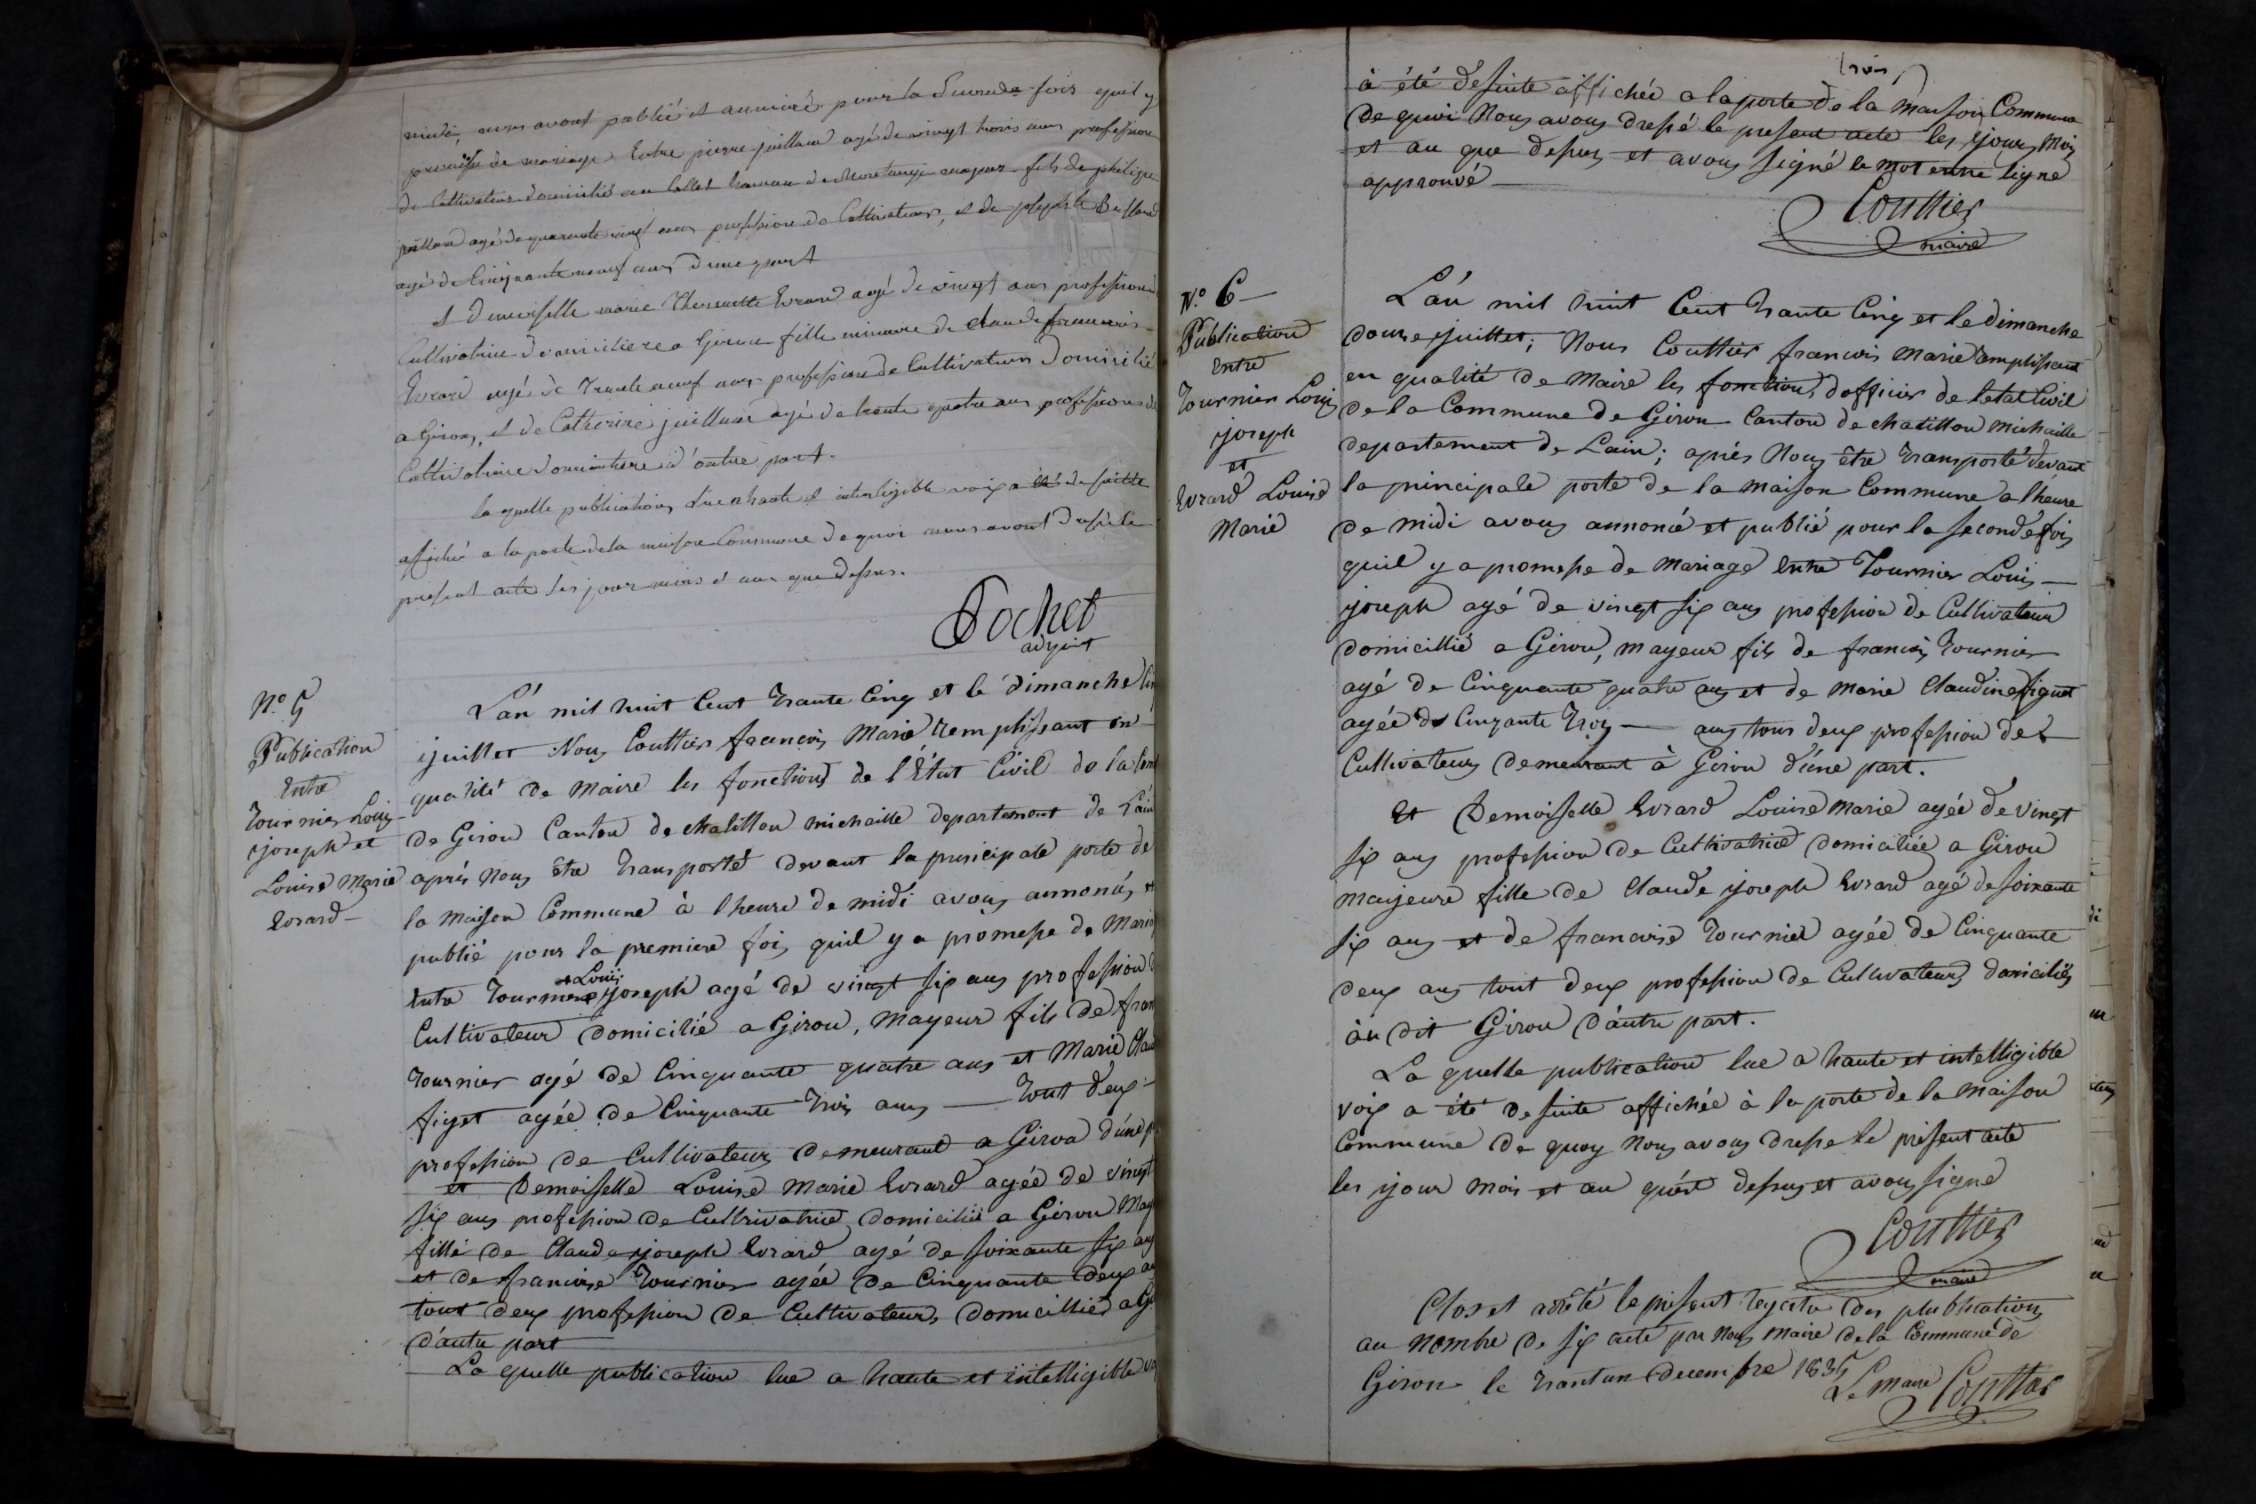 midi, nous avons publié et annoncé pour la seconde fois quil y
promesse de mariage Entre pierre juillard agé de vingt trois ans profession
de Cultivateur domicilié au Collet hameau de mayeur fils de philipe
juillard agé de quarante neuf ans profession de Cultivateur, et de
agé de Cinquante neuf ans d'une part
et demoiselle marie Evrard agé de vingt ans profession
Cultivatrice domiciliere a Giron fille mineure de claude francois
Evrard agé de trante neuf ans profession de Cultivateur Domicilié
a Giron, et de Catherine juillard agé de trante quatre ans profession de
Cultivatrice domiciliere d'autre part.
la quelle publication lue a haute et intelligible voix a été de suitte
afiché a la porte de la maison Commune de quoi nous avont dressé le
present acte les jour mois et an que dessus.
Pochet
adjoint
N.o 5
Publication
Entre
Tournier Louis
joseph et
Louise Marie
Evrard
L'an mil huit Cent trante Cinq et le dimanche
juillet Nous Couttier francois Marie remplissant en
qualité de Maire les fonctions de l'État Civil de la Com
de Giron Canton de chatillon michaille departement de Lain
aprés Nous être transporté devant la principale porte de
la Maison Commune à l'heure de midi avons annoncés et
publié pour la premiere fois quil y a promesse de Mariag
Entre Tournier Louis joseph agé de vingt six ans profession
Cultivateur domicilié a Giron, mayeur fils de fran
Tournier agé de Cinquante quatre ans et Marie Clau
figet agée de Cinquante trois ans — tout deux
profession de Cultivateurs demeurant a Giron d'une p
et Demoiselle Louise Marie Evrard agée de vingt
six ans profession de Cultivatrice domicilié a Giron May
fille de Claude joseph Evrard agé de soixante six ans
et de francoise Tournier agée de Cinquante deux
tout deux profession de Cultivateurs domicillié a Gi
d'autre part
La quelle publication lue a haute et intelligible vo
à été desuite affichée a la porte de la Maison Commune
de quoi Nous avons dressé le present acte les jours, Mois
et an que dessus et avons signé le mot entre ligne
approuvé
Couttier
maire
N.o 6
Publication
Entre
Tournier Louis
joseph
et
Evrard Louise
Marie
L'an mil huit Cent trante Cinq et le dimanche
douze juillet; Nous Couttier francois Marie remplissant
en qualité de Maire les fonctions d'officier de letat Civil
de la Commune de Giron Canton de chatillon michaille
departement de Lain; aprés Nous être transporté devant
la principale porte de la maison Commune a lheure
de midi avons annoncé et publié pour la seconde fois
quil y a promesse de Mariage entre Tournier Louis
joseph agé de vingt six ans profession de Cultivateur
domicillié a Giron, mayeur fils de francois Tournier
agé de Cinquante quatre ans et de Marie Claudine figuet
agée de Cinqante troys — ans tous deux profession de
Cultivateurs demeurant à Giron d'une part.
Et Demoiselle Evrard Louise Marie agée de vingt
six ans profession de Cultivatrice domiciliée a Giron
majeure fille de Claude joseph Evrard agé de soixante
six ans et de francoise Tournier agée de Cinquante
deux ans tout deux profession de Cultivateurs domiciliés
au dit Giron d'autre part.
La quelle publication lue a haute et intelligible
voix a été desuite affichée à la porte de la maison
Commune de quoy Nous avons dressé le présent acte
les jour mois et an quest dessus et avons signé
Couttier
maire
Clos et arrêté le présent registre des publications
au nombre de six acte par nous maire de la Commune de
Giron le trant un decembre 1835
Le maire Couttier